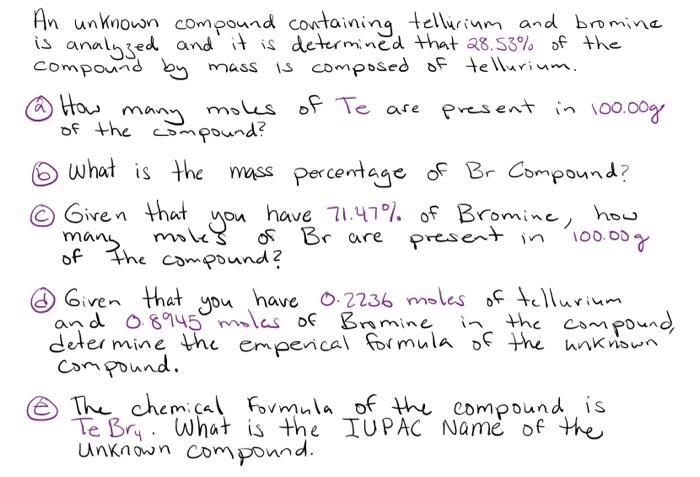 An unknown compound containing tellurium and bromine
is analyzed and it is determined that 28.53% of the
compound by mass is composed of tellurium.
ⓐ How many moles of Te are present in 100.00g
of the compound?
ⓑ What is the mass percentage of Br Compound?
ⓒ Given that you have 71.47% of Bromine, how
many moles of Br are present in 100.00g
of the compound?
ⓓ Given that you have 0.2236 moles of tellurium
and 0.8945 moles of Bromine in the compound,
determine the emperical formula of the unknown
compound.
ⓔ The chemical Formula of the compound is
TeBr₄. What is the IUPAC Name of the
Unknown compound.